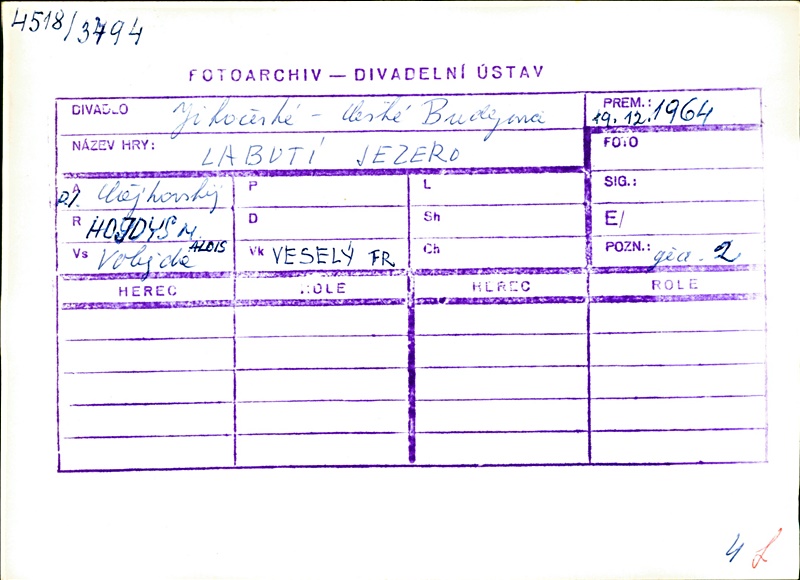 4518/3794
FOTOARCHIV — DIVADELNÍ ÚSTAV
DIVADLO Jihočeské - České Budějovice
PREM.: 19. 12. 1964
NÁZEV HRY: LABUTÍ JEZERO
FOTO
A P.I. Čajkovskij P L SIG.:
R HOJDYS M. D Sh E/
Vs Volejde ALOIS Vk VESELÝ FR Ch POZN.: 2
HEREC ROLE HEREC ROLE
4